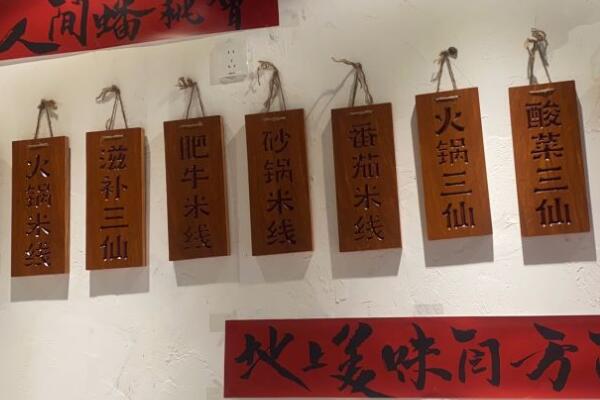 人间蟠桃
火锅米线
滋补三仙
肥牛米线
砂锅米线
番茄米线
火锅三仙
酸菜三仙
地上美味闻方